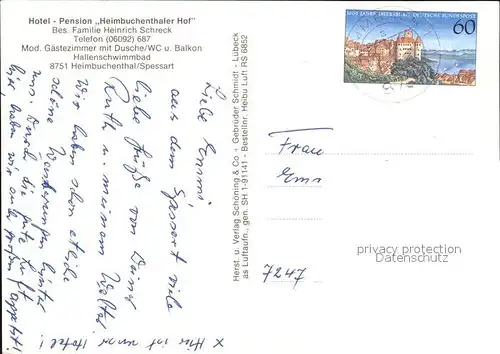 Hotel - Pension „Heimbuchenthaler Hof"
Bes. Familie Heinrich Schreck
Telefon (06092) 687
Mod. Gästezimmer mit Dusche/WC u. Balkon
Hallenschwimmbad
8751 Heimbuchenthal/Spessart
Liebe Emmi
aus dem Spessart viele
liebe Grüße von Deiner
Ruth u. meinem Walter
Wir haben schon etliche
schöne Wanderungen hinter
uns. Durch die gute Luft
hier haben wir auch großen Appetit!
x Hier ist unser Hotel!
Herst. u. Verlag Schöning & Co + Gebrüder Schmidt - Lübeck
as Luftaufn., gen. SH 1-91141 - Bestellnr. Heibu Luft RS 6852
1000 JAHRE MEERSBURG DEUTSCHE BUNDESPOST
60
Frau
Ems
privacy protection
AnsichtskartenVersand.com
7247